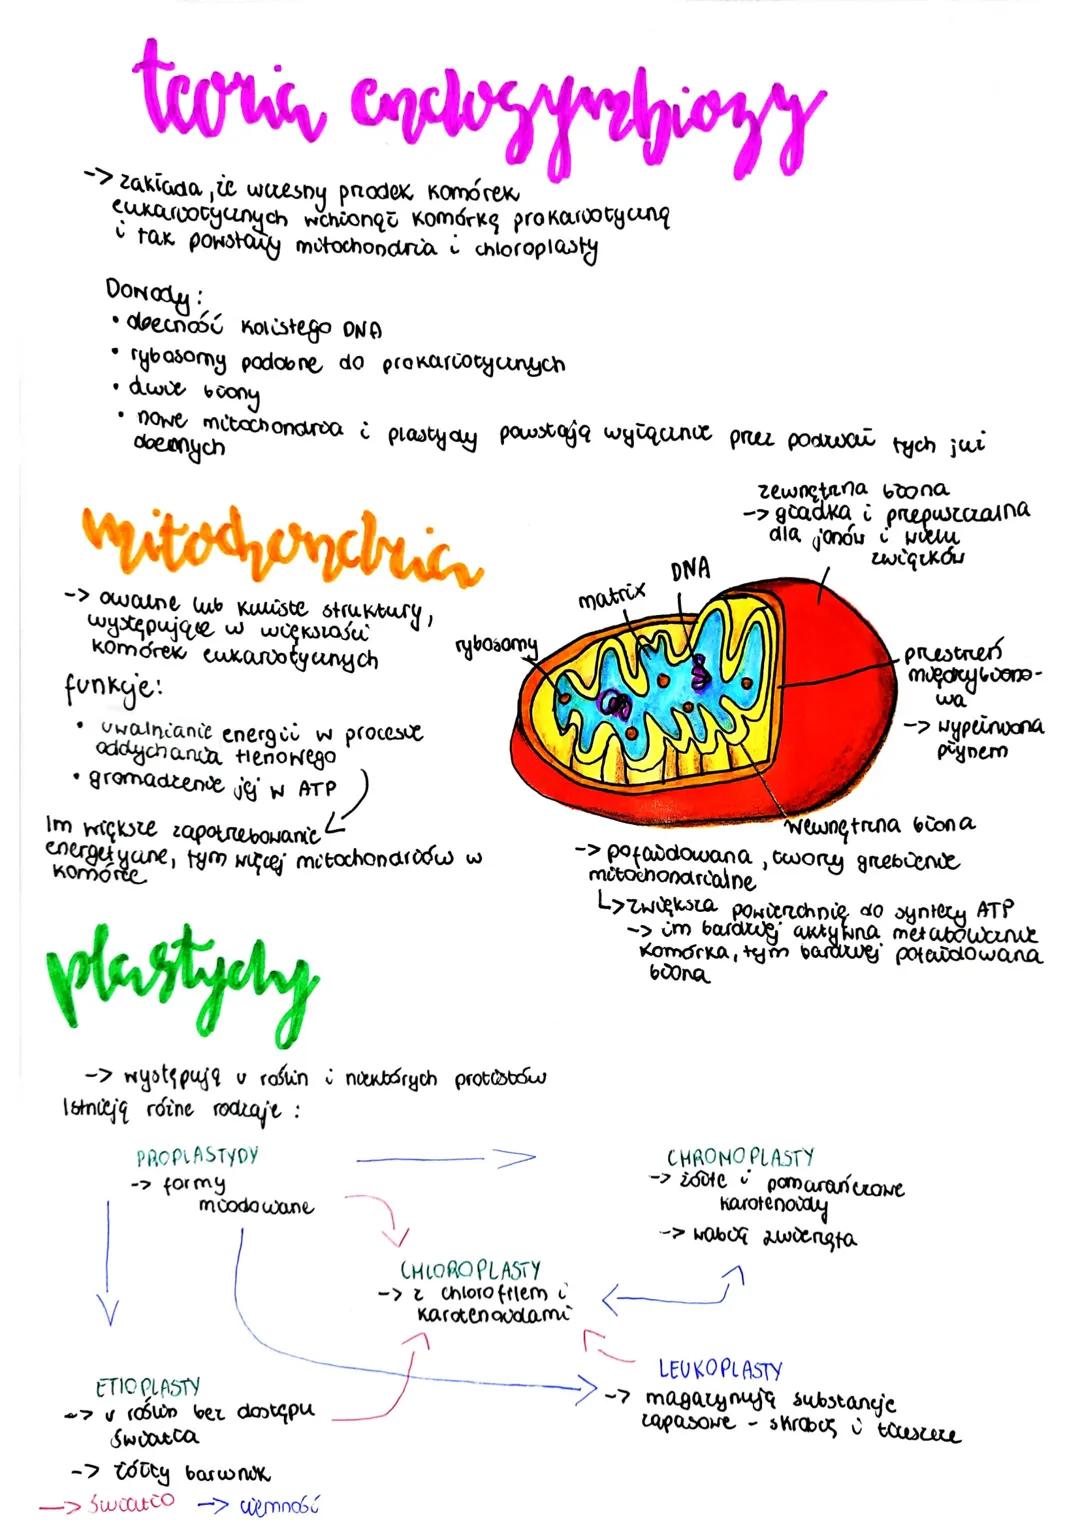 teoria endosymbiozy
-> zakłada, że wczesny przodek komórek
eukariotycznych wchłonął komórkę prokariotyczną
i tak powstały mitochondria i chloroplasty
Dowody:
• obecność kolistego DNA
• rybosomy podobne do prokariotycznych
• dwie błony
• nowe mitochondria i plastydy powstają wyłącznie przez podział tych już
obecnych
mitochondria
-> owalne lub kuliste struktury,
występujące w większości
komórek eukariotycznych
funkcje:
• uwalnianie energii w procesie
oddychania tlenowego
• gromadzenie jej w ATP
Im większe zapotrzebowanie
energetyczne, tym więcej mitochondriów w
komórce
zewnętrzna błona
-> gładka i przepuszczalna
dla jonów i wielu
związków
DNA
matrix
rybosomy
przestrzeń
międzybłono-
wa
-> wypełniona
płynem
wewnętrzna błona
-> pofałdowana, tworzy grzebienie
mitochondrialne
↳> zwiększa powierzchnię do syntezy ATP
-> im bardziej aktywna metabolicznie
komórka, tym bardziej pofałdowana
błona
plastydy
-> występują u roślin i niektórych protistów
Istnieją różne rodzaje :
PROPLASTYDY
-> formy
młodowane
CHROMOPLASTY
-> żółte i pomarańczowe
karotenoidy
-> wabią zwierzęta
CHLOROPLASTY
-> z chlorofilem i
karotenoidami
ETIOPLASTY
-> u roślin bez dostępu
światła
-> żółty barwnik
LEUKOPLASTY
-> magazynują substancje
zapasowe - skrobię i tłuszcze
-> światło -> ciemność